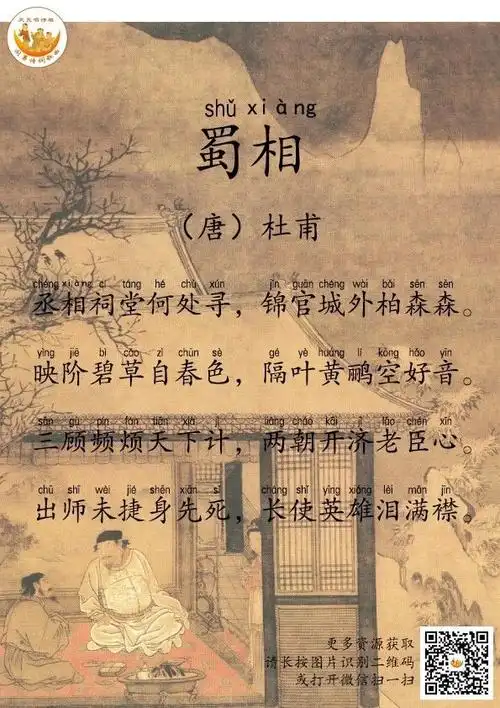 shǔ xiàng
蜀相
（唐）杜甫
chéng xiàng cí táng hé chù xún jǐn guān chéng wài bǎi sēn sēn
丞相祠堂何处寻，锦官城外柏森森。
yìng jiē bì cǎo zì chūn sè gé yè huáng lí kōng hǎo yīn
映阶碧草自春色，隔叶黄鹂空好音。
sān gù pín fán tiān xià jì liǎng cháo kāi jì lǎo chén xīn
三顾频烦天下计，两朝开济老臣心。
chū shī wèi jié shēn xiān sǐ cháng shǐ yīng xióng lèi mǎn jīn
出师未捷身先死，长使英雄泪满襟。
更多资源获取
请长按图片识别二维码
或打开微信扫一扫